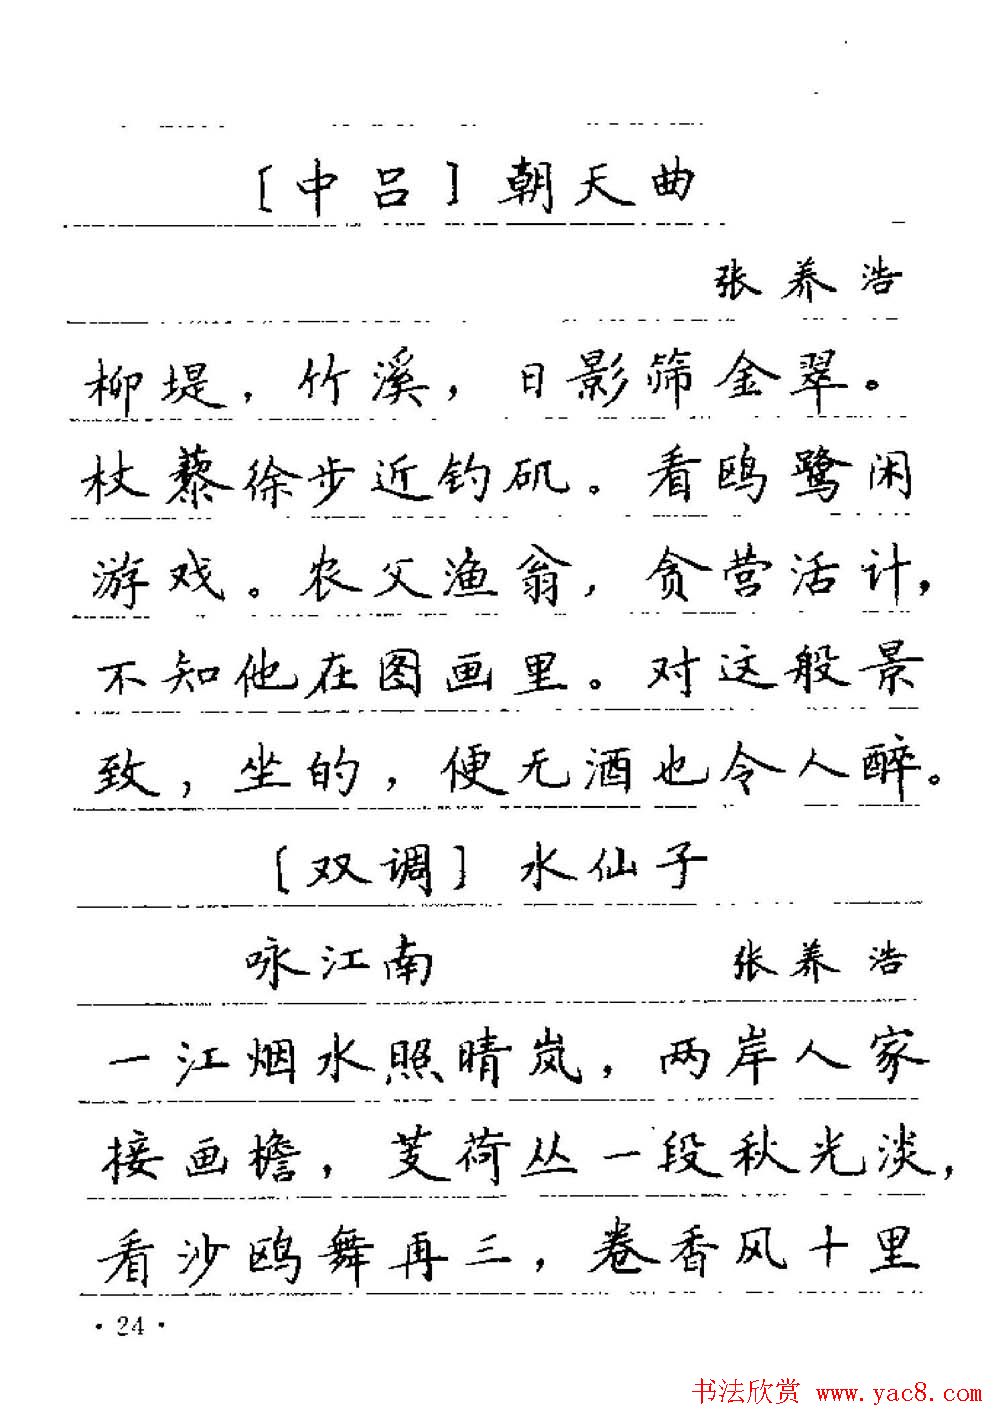 [中吕]朝天曲
张养浩
柳堤，竹溪，日影筛金翠。
杖藜徐步近钓矶。看鸥鹭闲
游戏。农父渔翁，贪营活计，
不知他在图画里。对这般景
致，坐的，便无酒也令人醉。
[双调]水仙子
咏江南 张养浩
一江烟水照晴岚，两岸人家
接画檐，芰荷丛一段秋光淡，
看沙鸥舞再三，卷香风十里
·24·
书法欣赏 www.yac8.com